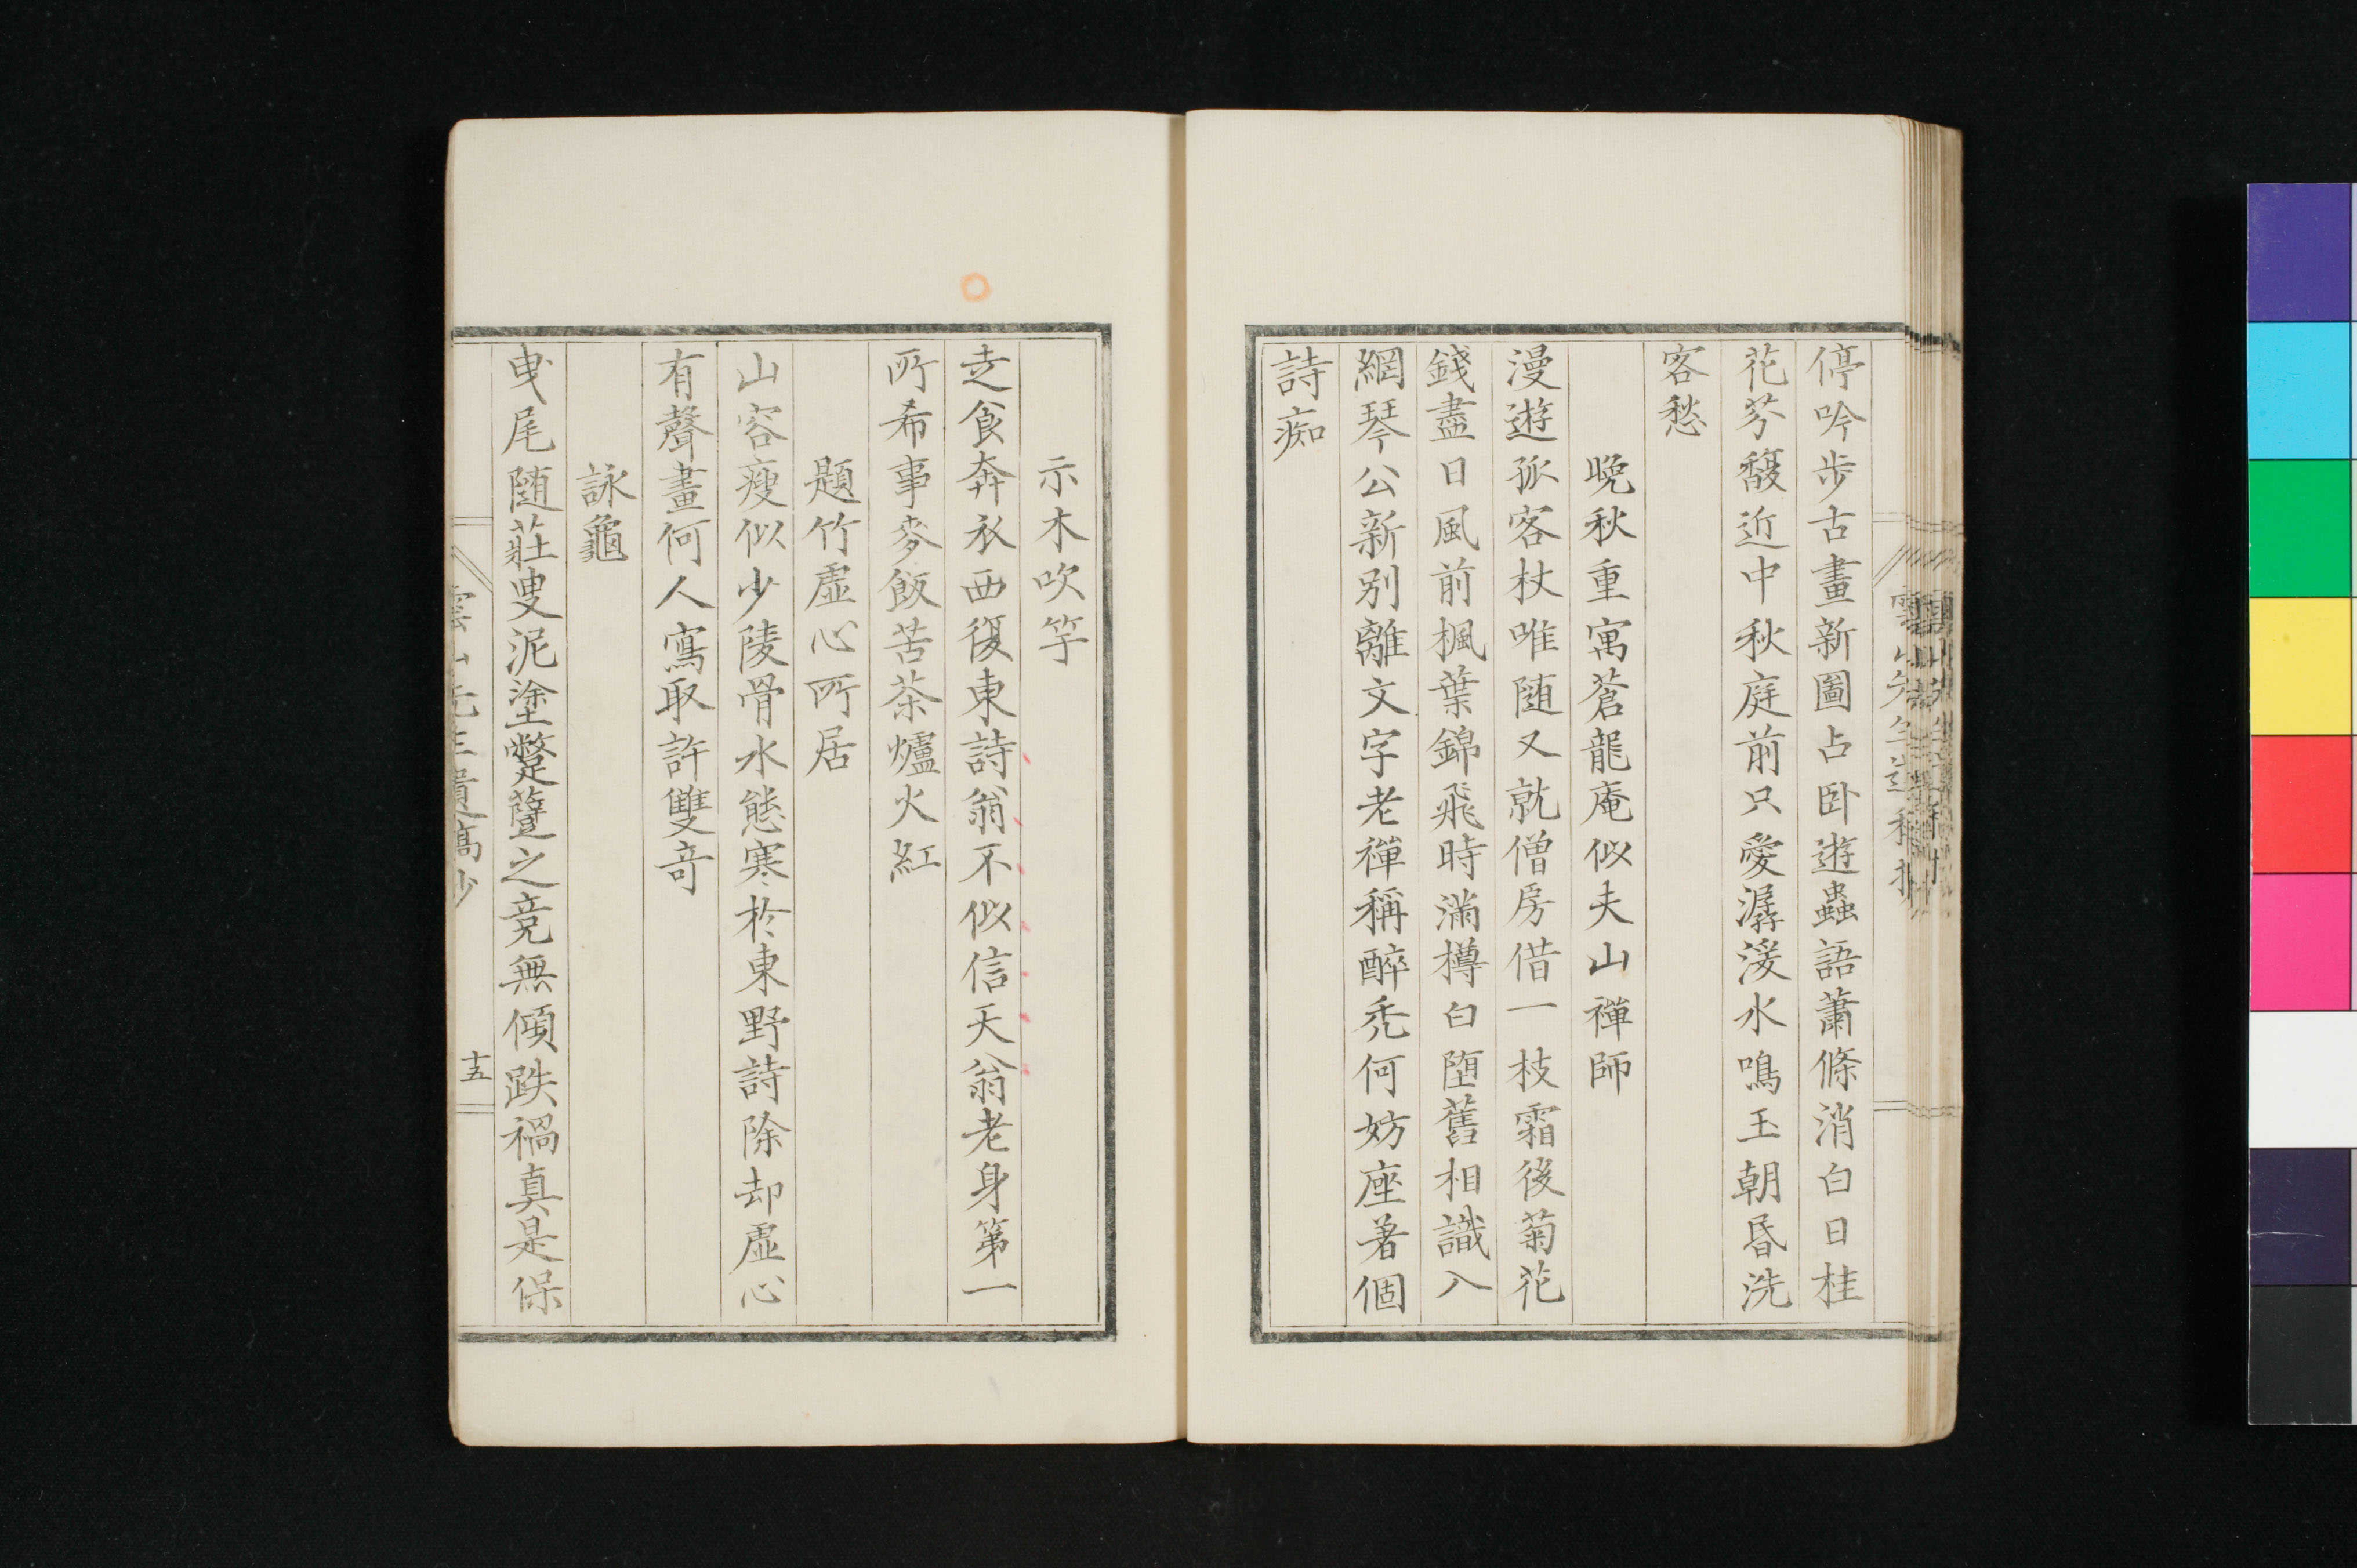 停吟步古畫新圖占卧遊蟲語蕭條消白日桂
花芬馥近中秋庭前只愛潺湲水鳴玉朝昏洗
客愁
晩秋重寓蒼龍庵似夫山禪師
漫遊孤客杖唯随又就僧房借一枝霜後菊花
錢盡日風前楓葉錦飛時滿樽白堕舊相識入
網琴公新别離文字老禪稱醉禿何妨座著個
詩痴
示木吹竽
走食奔衣西復東詩翁不似信天翁老身第一
所希事麥飯苦茶爐火紅
題竹虛心所居
山容瘦似少陵骨水態寒於東野詩除却虛心
有聲畫何人寫取許雙奇
詠龜
曳尾随莊叟泥塗蹩躠之竟無傾跌禍真是保
雲山先生遺稿抄
十五